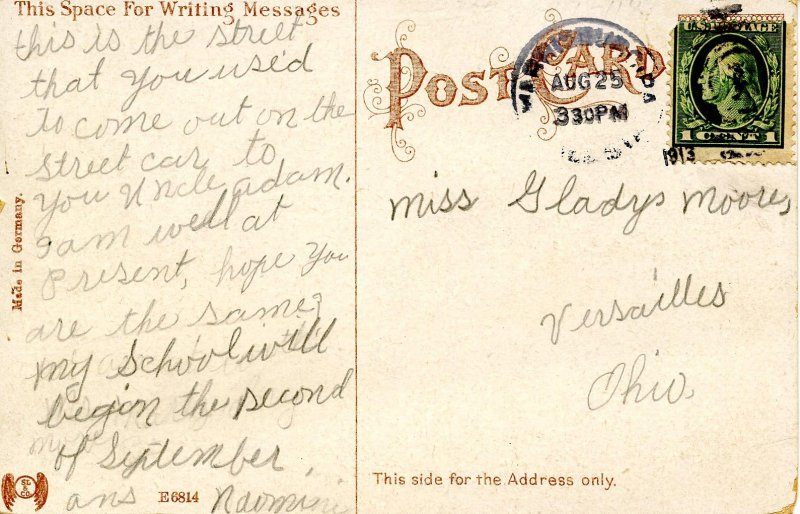 This Space For Writing Messages
this is the street
that you used
to come out on the
street car to
you Uncle adam.
I am well at
Present, hope you
are the same,
my school will
begin the second
of September,
ans Naomi
Made in Germany.
E6814
POST CARD
AUG 25
330 PM
1913
U.S. POSTAGE
1 CENT 1
miss Gladys Moores
Versailles
Ohio.
This side for the Address only.